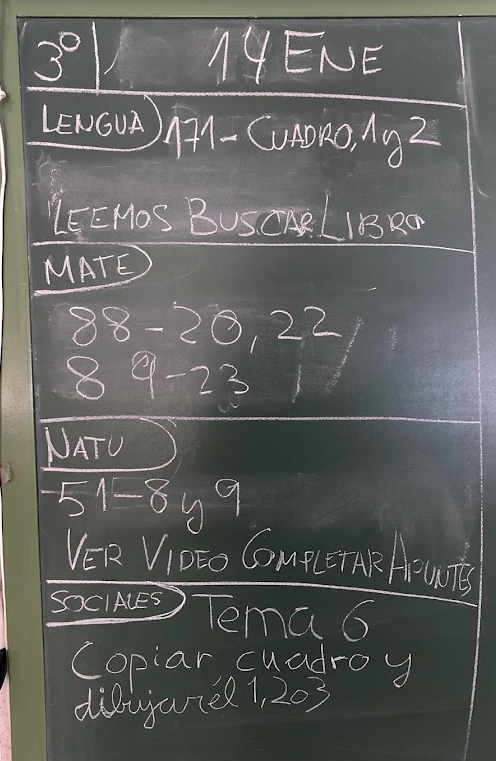 3º 14 ENE
LENGUA 171 - CUADRO, 1 y 2
LEEMOS BUSCAR LIBRO
MATE
88 - 20, 22
89 - 23
NATU
51 - 8 y 9
VER VIDEO COMPLETAR APUNTES
SOCIALES Tema 6
Copiar cuadro y
dibujar él 1, 2 o 3